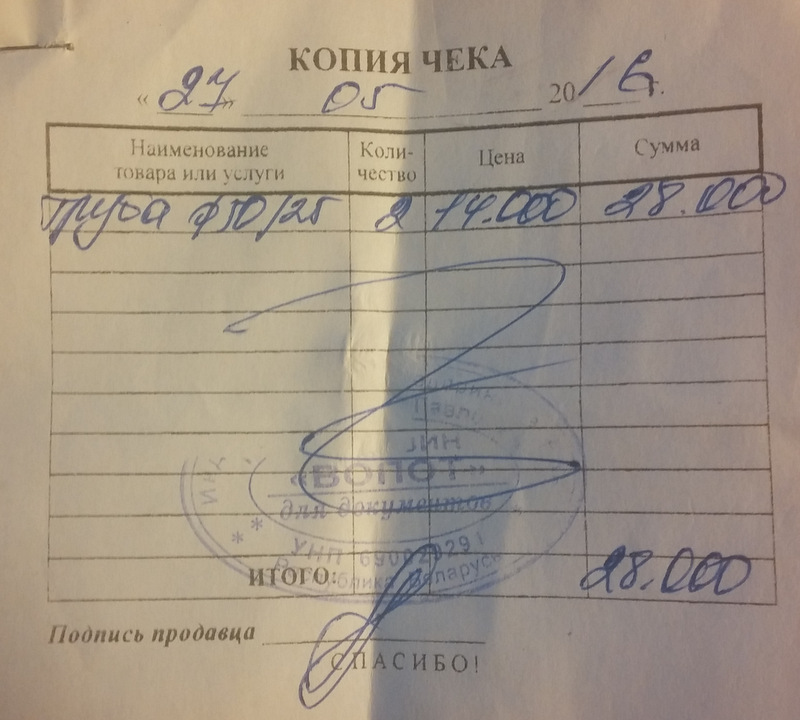 КОПИЯ ЧЕКА
« 27 » 05 20 16 г.
Наименование товара или услуги Коли-чество Цена Сумма
труба ф50/25 2 14.000 28.000
«ВОПОТ»
для документов
УНП 690629291
Республика Беларусь
ИТОГО: 28.000
Подпись продавца
СПАСИБО!